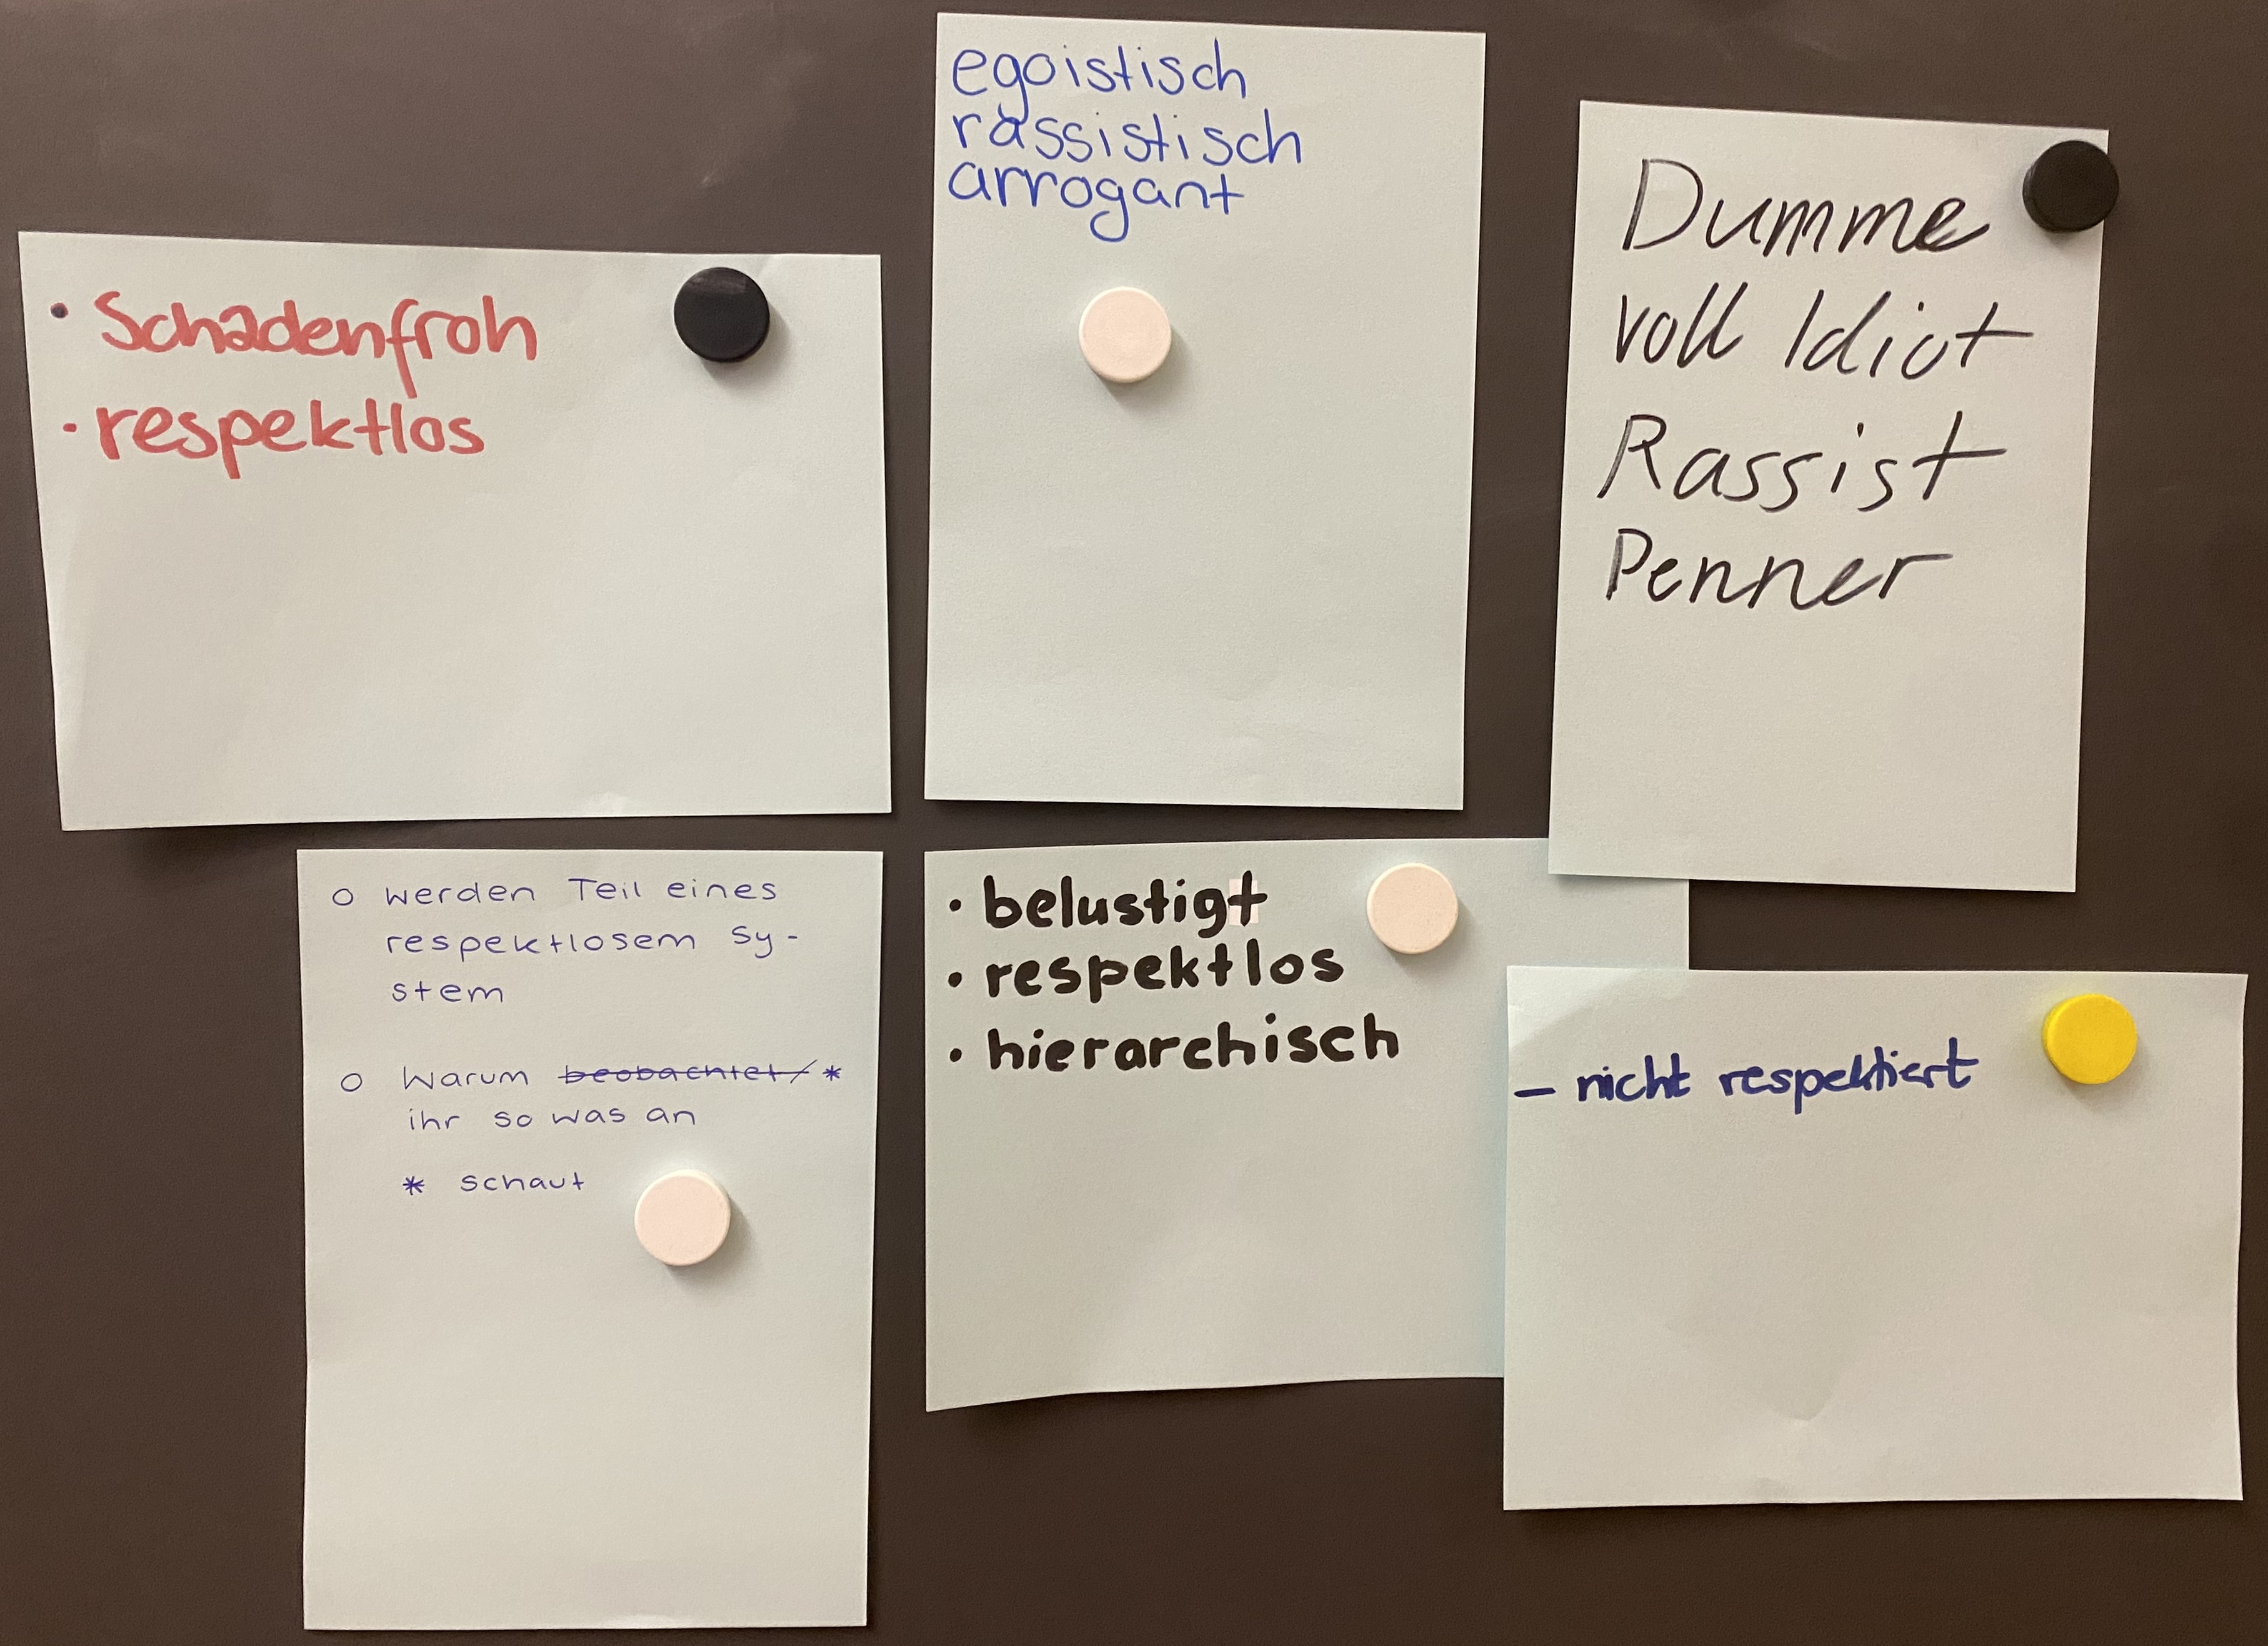 • Schadenfroh
• respektlos
egoistisch
rassistisch
arrogant
Dumme
voll Idiot
Rassist
Penner
o werden Teil eines
respektlosem Sy-
stem
o Warum beobachtet/*
ihr so was an
* schaut
• belustigt
• respektlos
• hierarchisch
– nicht respektiert